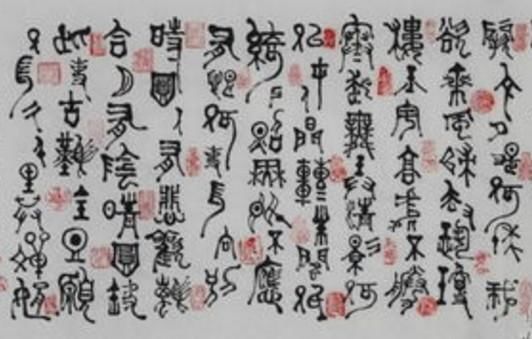 闕今夕是何年我
欲乘風歸去又恐瓊
樓玉宇高處不勝
寒起舞弄清影何
似在人間轉朱閣低
綺戶照無眠不應
有恨何事長向別
時圓人有悲歡離
合月有陰晴圓缺
此事古難全但願
人長久千里共嬋娟